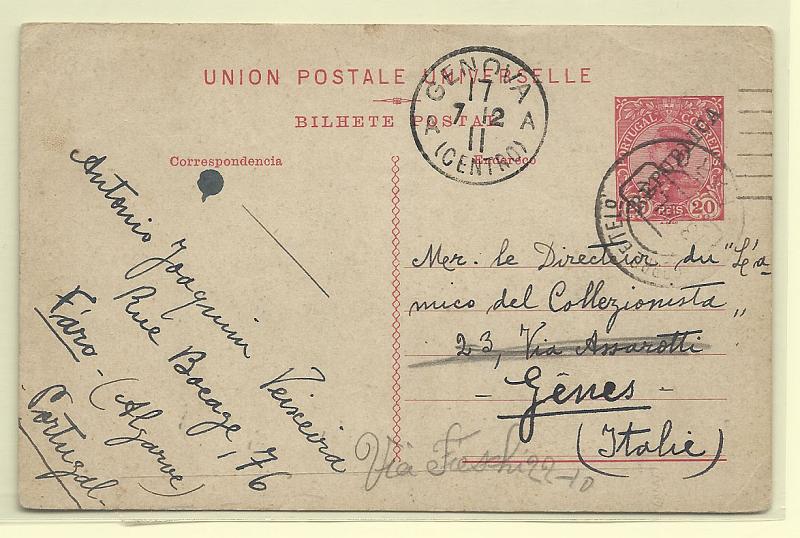 UNION POSTALE UNIVERSELLE
BILHETE POSTAL
Correspondencia
Endereço
GENOVA
17
7 12
11
A A
(CENTRO)
PORTUGAL CORREIOS
REPUBLICA
20 REIS 20
Antonio Joaquim Teixeira
Rue Bocage, 76
Fáro - (Algarve)
Portugal
Mer. le Directeur du "L'a-
mico del Collezionista"
23, Via Assarotti
- Gênes -
(Italie)
Via Freschi 22-10